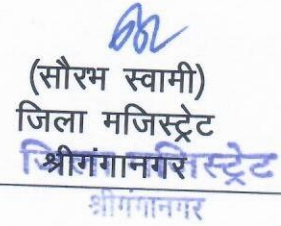 (सौरभ स्वामी)
जिला मजिस्ट्रेट
श्रीगंगानगर
जिला मजिस्ट्रेट
श्रीगंगानगर